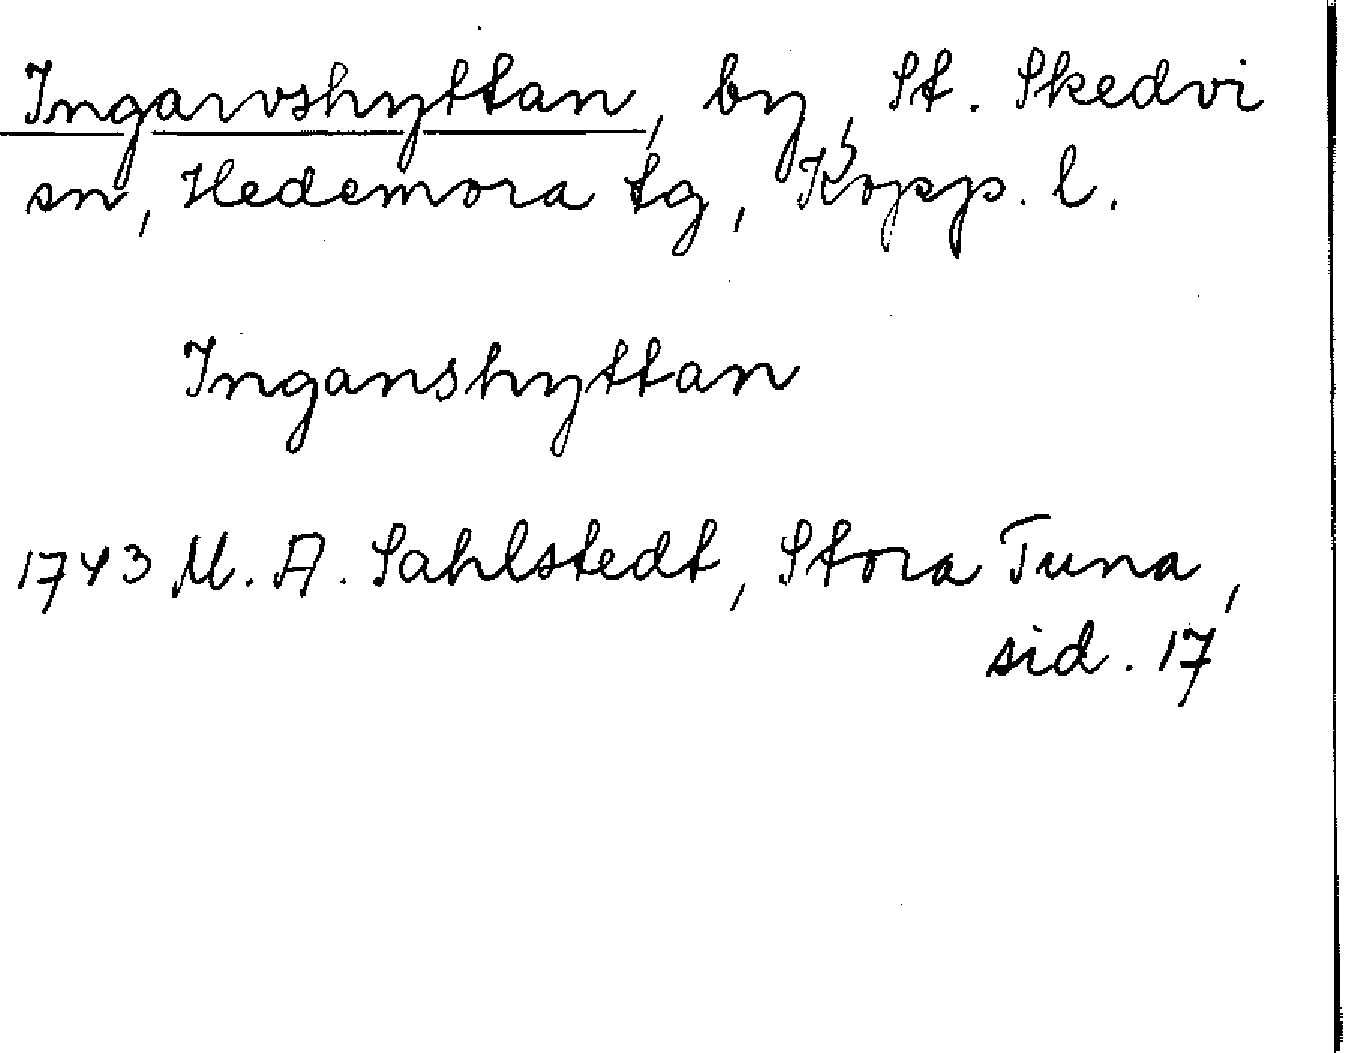 Ingarvshyttan, by, St. Skedvi
sn, Hedemora tg, Kopp. l.
Inganshyttan
1743 M. A. Sahlstedt, Stora Tuna,
sid. 17